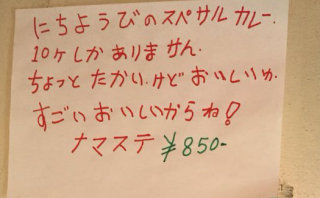 にちようびのスペサルカレー.
10ケしかありません.
ちょっとたかい.けどおいしいゆ.
すごいおいしいからね!
ナマステ ¥850-